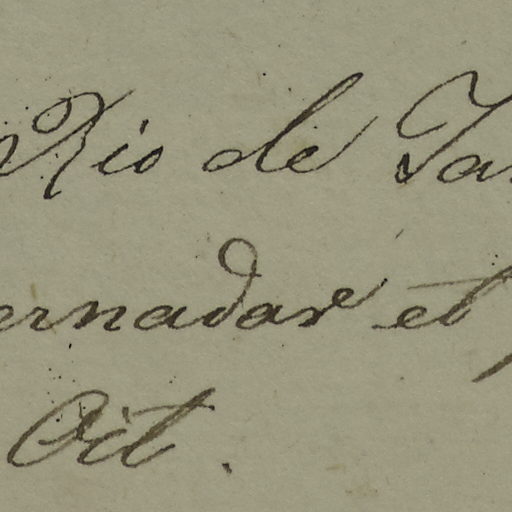 Rio de Ja
ernador et
Oit.